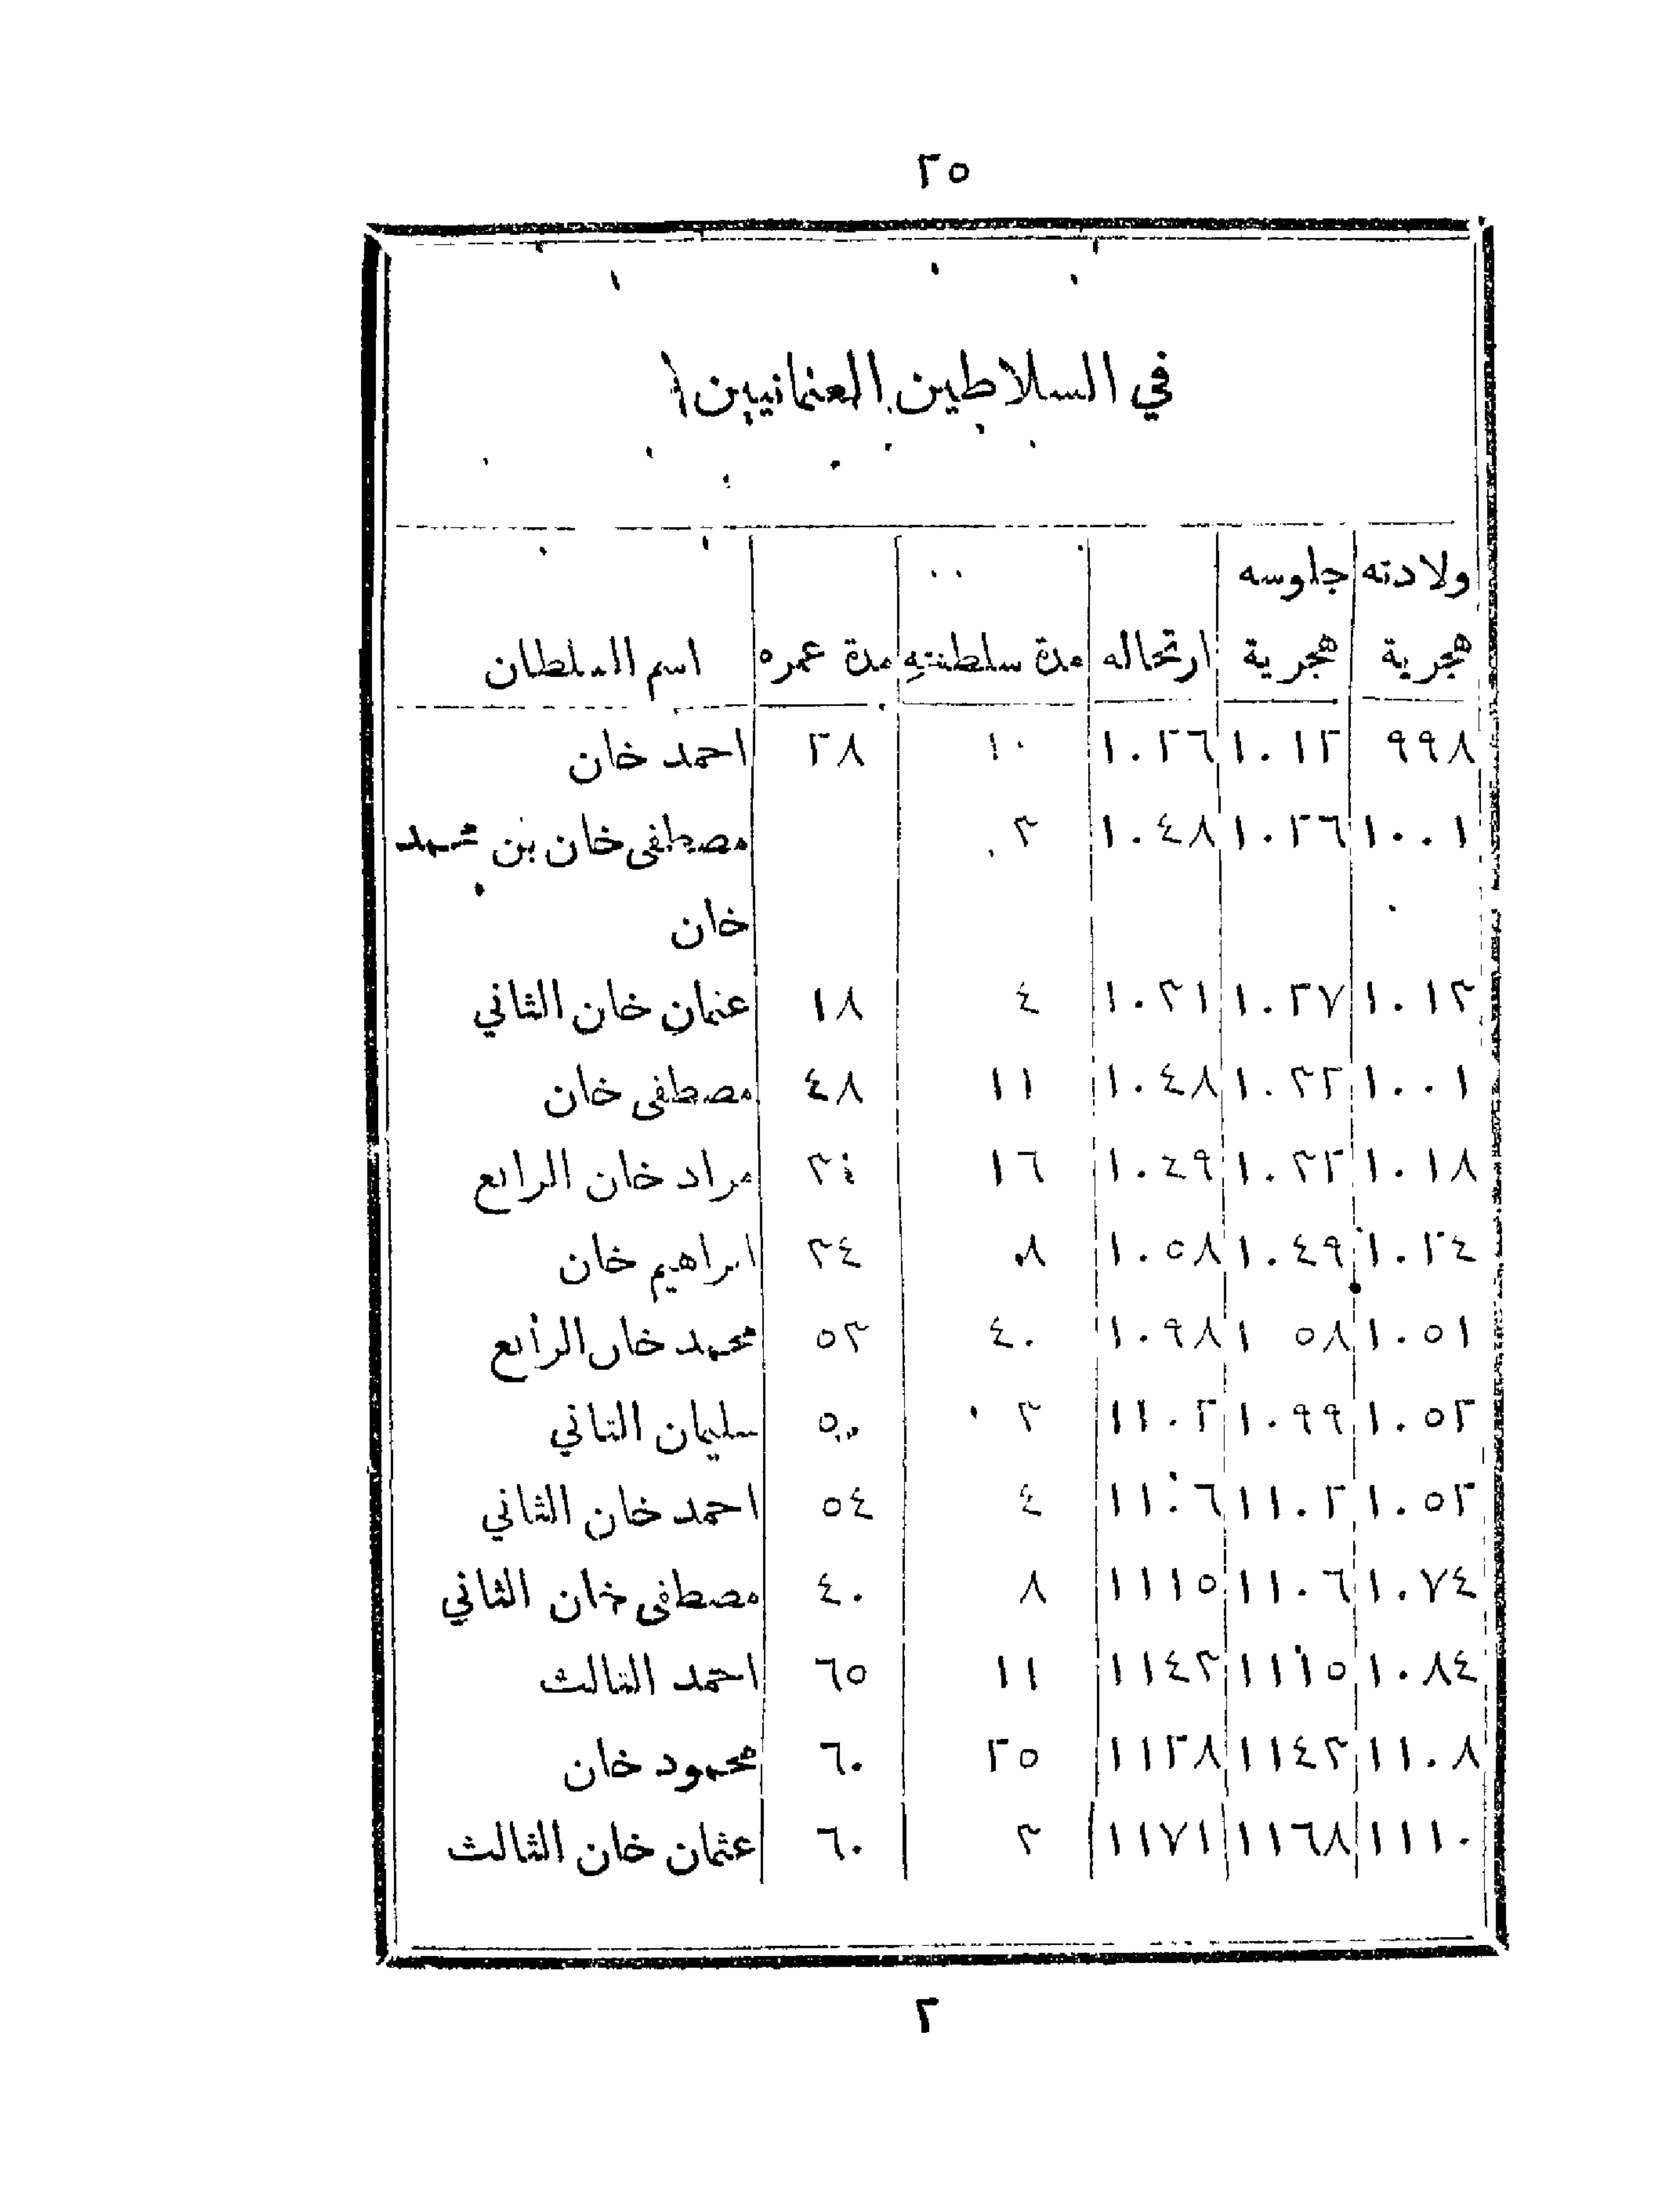 ٢٥
في السلاطين العثمانيين
ولادته جلوسه
هجرية هجرية ارتحاله مدة سلطنتهِ مدة عمره اسم السلطان
٩٩٨ ١٠١٢ ١٠٢٦ ١٠ ٢٨ احمد خان
١٠٠١ ١٠٢٦ ١٠٤٨ ٣ مصطفى خان بن محمد
خان
١٠١٣ ١٠٢٧ ١٠٣١ ٤ ١٨ عثمان خان الثاني
١٠٠١ ١٠٣٢ ١٠٤٨ ١١ ٤٨ مصطفى خان
١٠١٨ ١٠٣٢ ١٠٤٩ ١٦ ٣٤ مراد خان الرابع
١٠٢٤ ١٠٤٩ ١٠٥٨ ٨ ٣٤ ابراهيم خان
١٠٥١ ١٠٥٨ ١٠٩٨ ٤٠ ٥٣ محمد خان الرابع
١٠٥٢ ١٠٩٩ ١١٠٢ ٣ ٥٠ سليمان الثاني
١٠٥٢ ١١٠٢ ١١٠٦ ٤ ٥٤ احمد خان الثاني
١٠٧٤ ١١٠٦ ١١١٥ ٨ ٤٠ مصطفى خان الثاني
١٠٨٤ ١١١٥ ١١٤٣ ١١ ٦٥ احمد الثالث
١١٠٨ ١١٤٣ ١١٢٨ ٢٥ ٦٠ محمود خان
١١١٠ ١١٦٨ ١١٧١ ٣ ٦٠ عثمان خان الثالث
٢